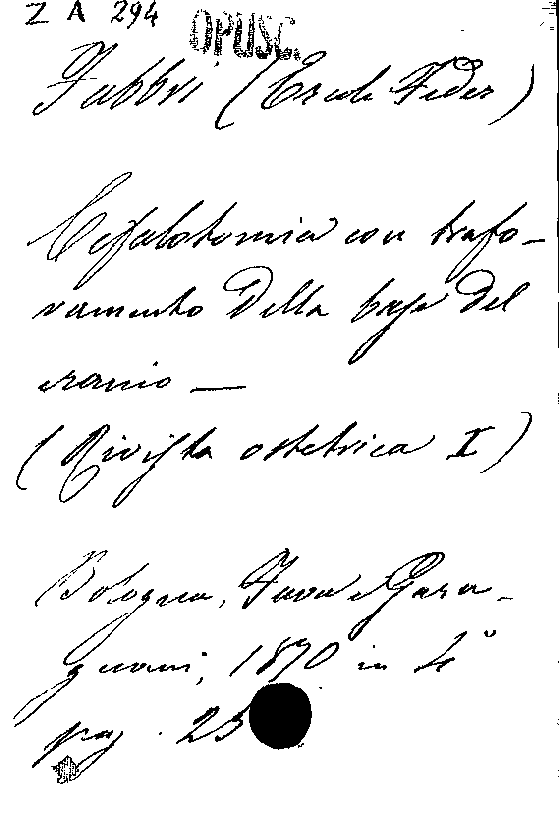 Z A 294
OPUSC.
Fabbri (Ercole Feder)
Cefalotomia con trafo-
ramento della base del
cranio —
(Rivista ostetrica I)
Bologna, Fava e Gara-
gnani, 1870 in 4°
pag. 23